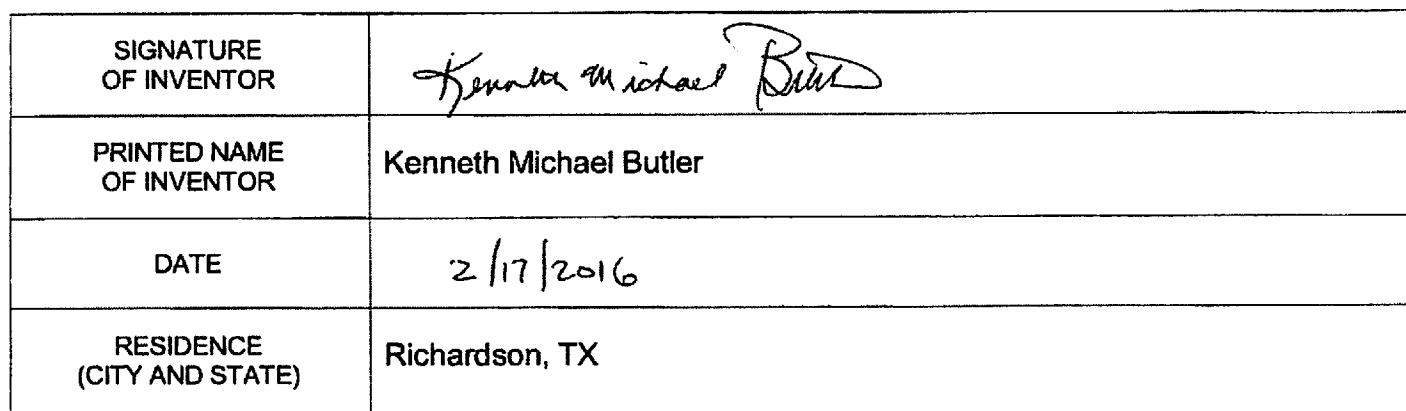 SIGNATURE
OF INVENTOR
Kenneth Michael Butler
PRINTED NAME
OF INVENTOR
Kenneth Michael Butler
DATE
2/17/2016
RESIDENCE
(CITY AND STATE)
Richardson, TX